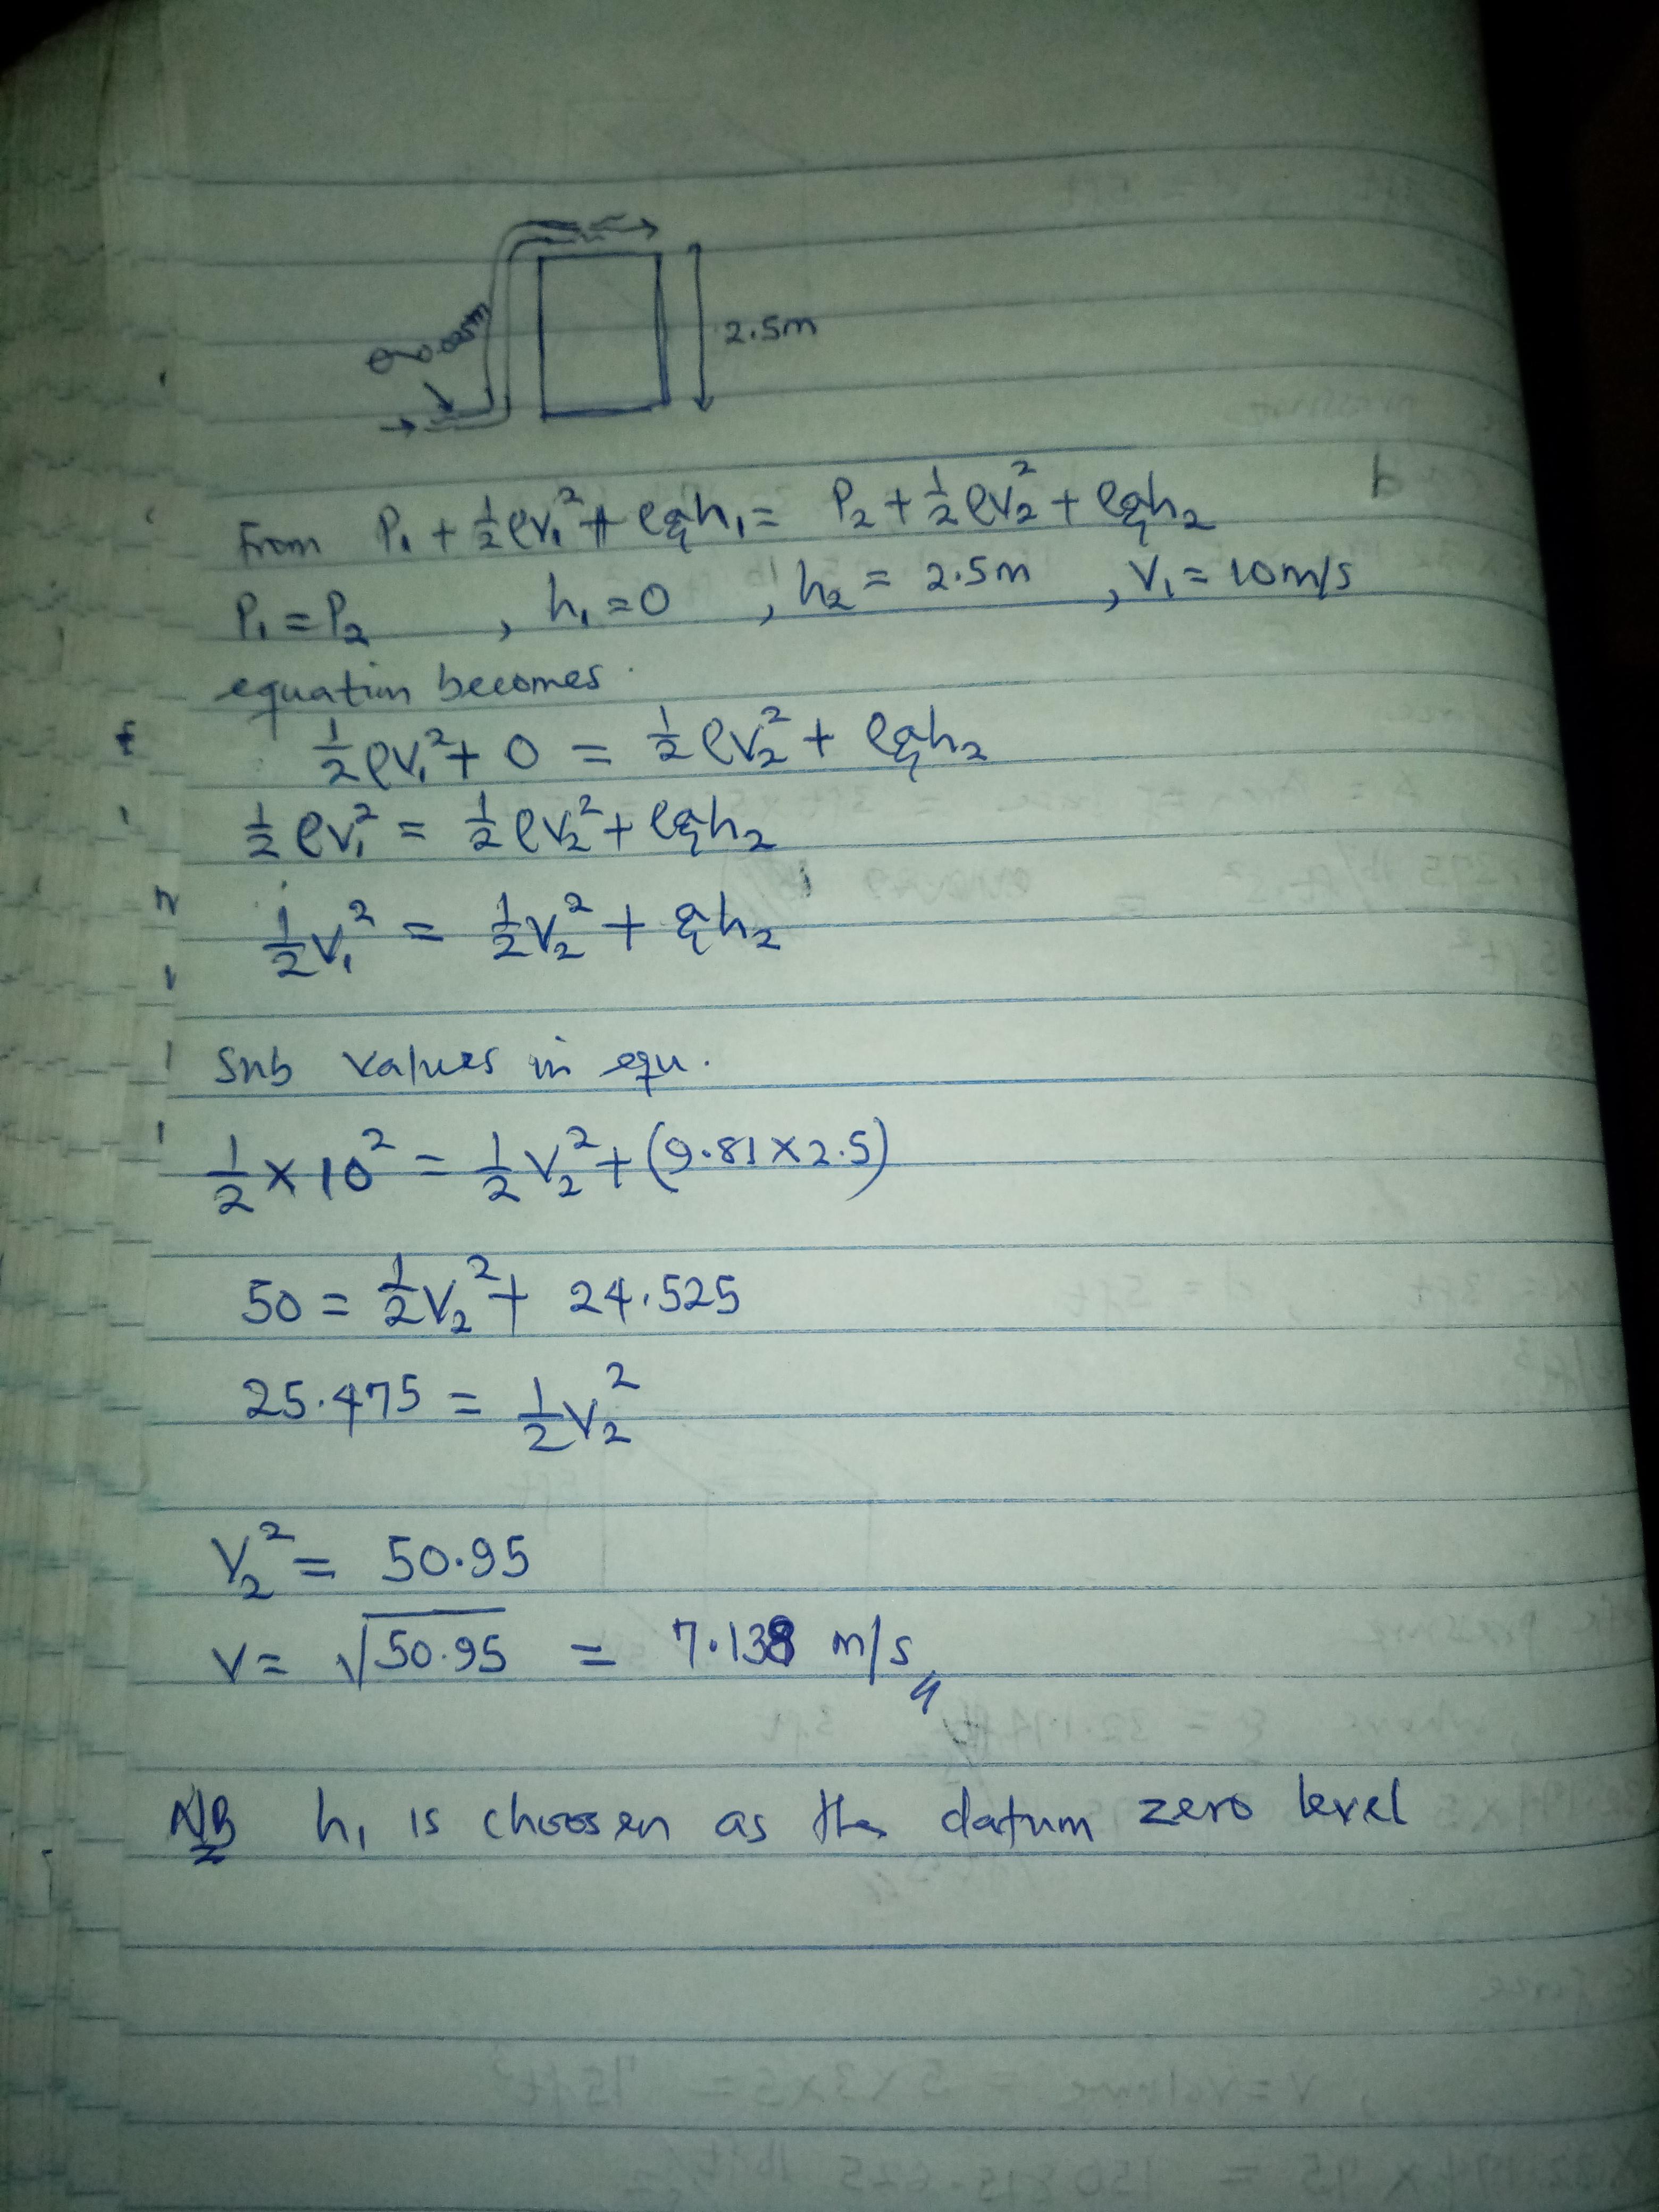 2.5m
From P₁ + ½ρv₁² + ρgh₁ = P₂ + ½ρv₂² + ρgh₂
P₁ = P₂ , h₁ = 0 , h₂ = 2.5m , V₁ = 10m/s
equation becomes
½ρv₁² + 0 = ½ρv₂² + ρgh₂
½ρv₁² = ½ρv₂² + ρgh₂
½v₁² = ½v₂² + gh₂
Sub values in equ.
½ × 10² = ½v₂² + (9.81 × 2.5)
50 = ½v₂² + 24.525
25.475 = ½v₂²
V₂² = 50.95
V = √50.95 = 7.138 m/s
NB h₁ is choosen as the datum zero level